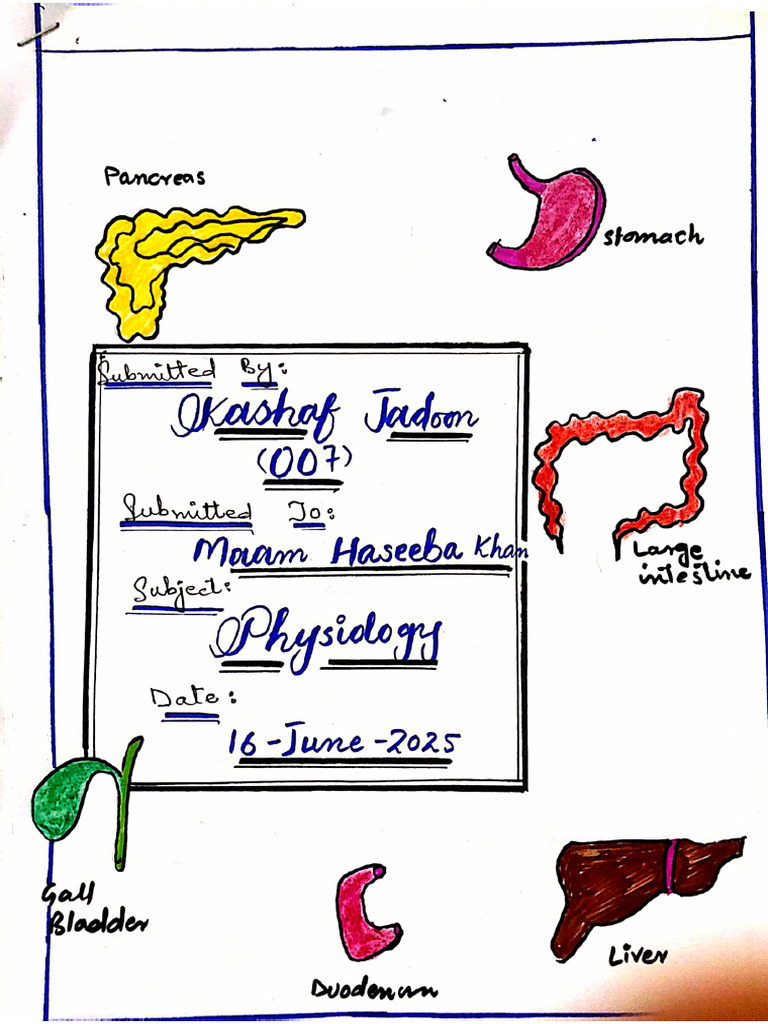 Pancreas
Stomach
Submitted By:
Kashaf Jadoon
(007)
Submitted To:
Maam Haseeba Khan
Subject:
Physiology
Date:
16-June-2025
Large
intestine
Gall
Bladder
Duodenum
Liver